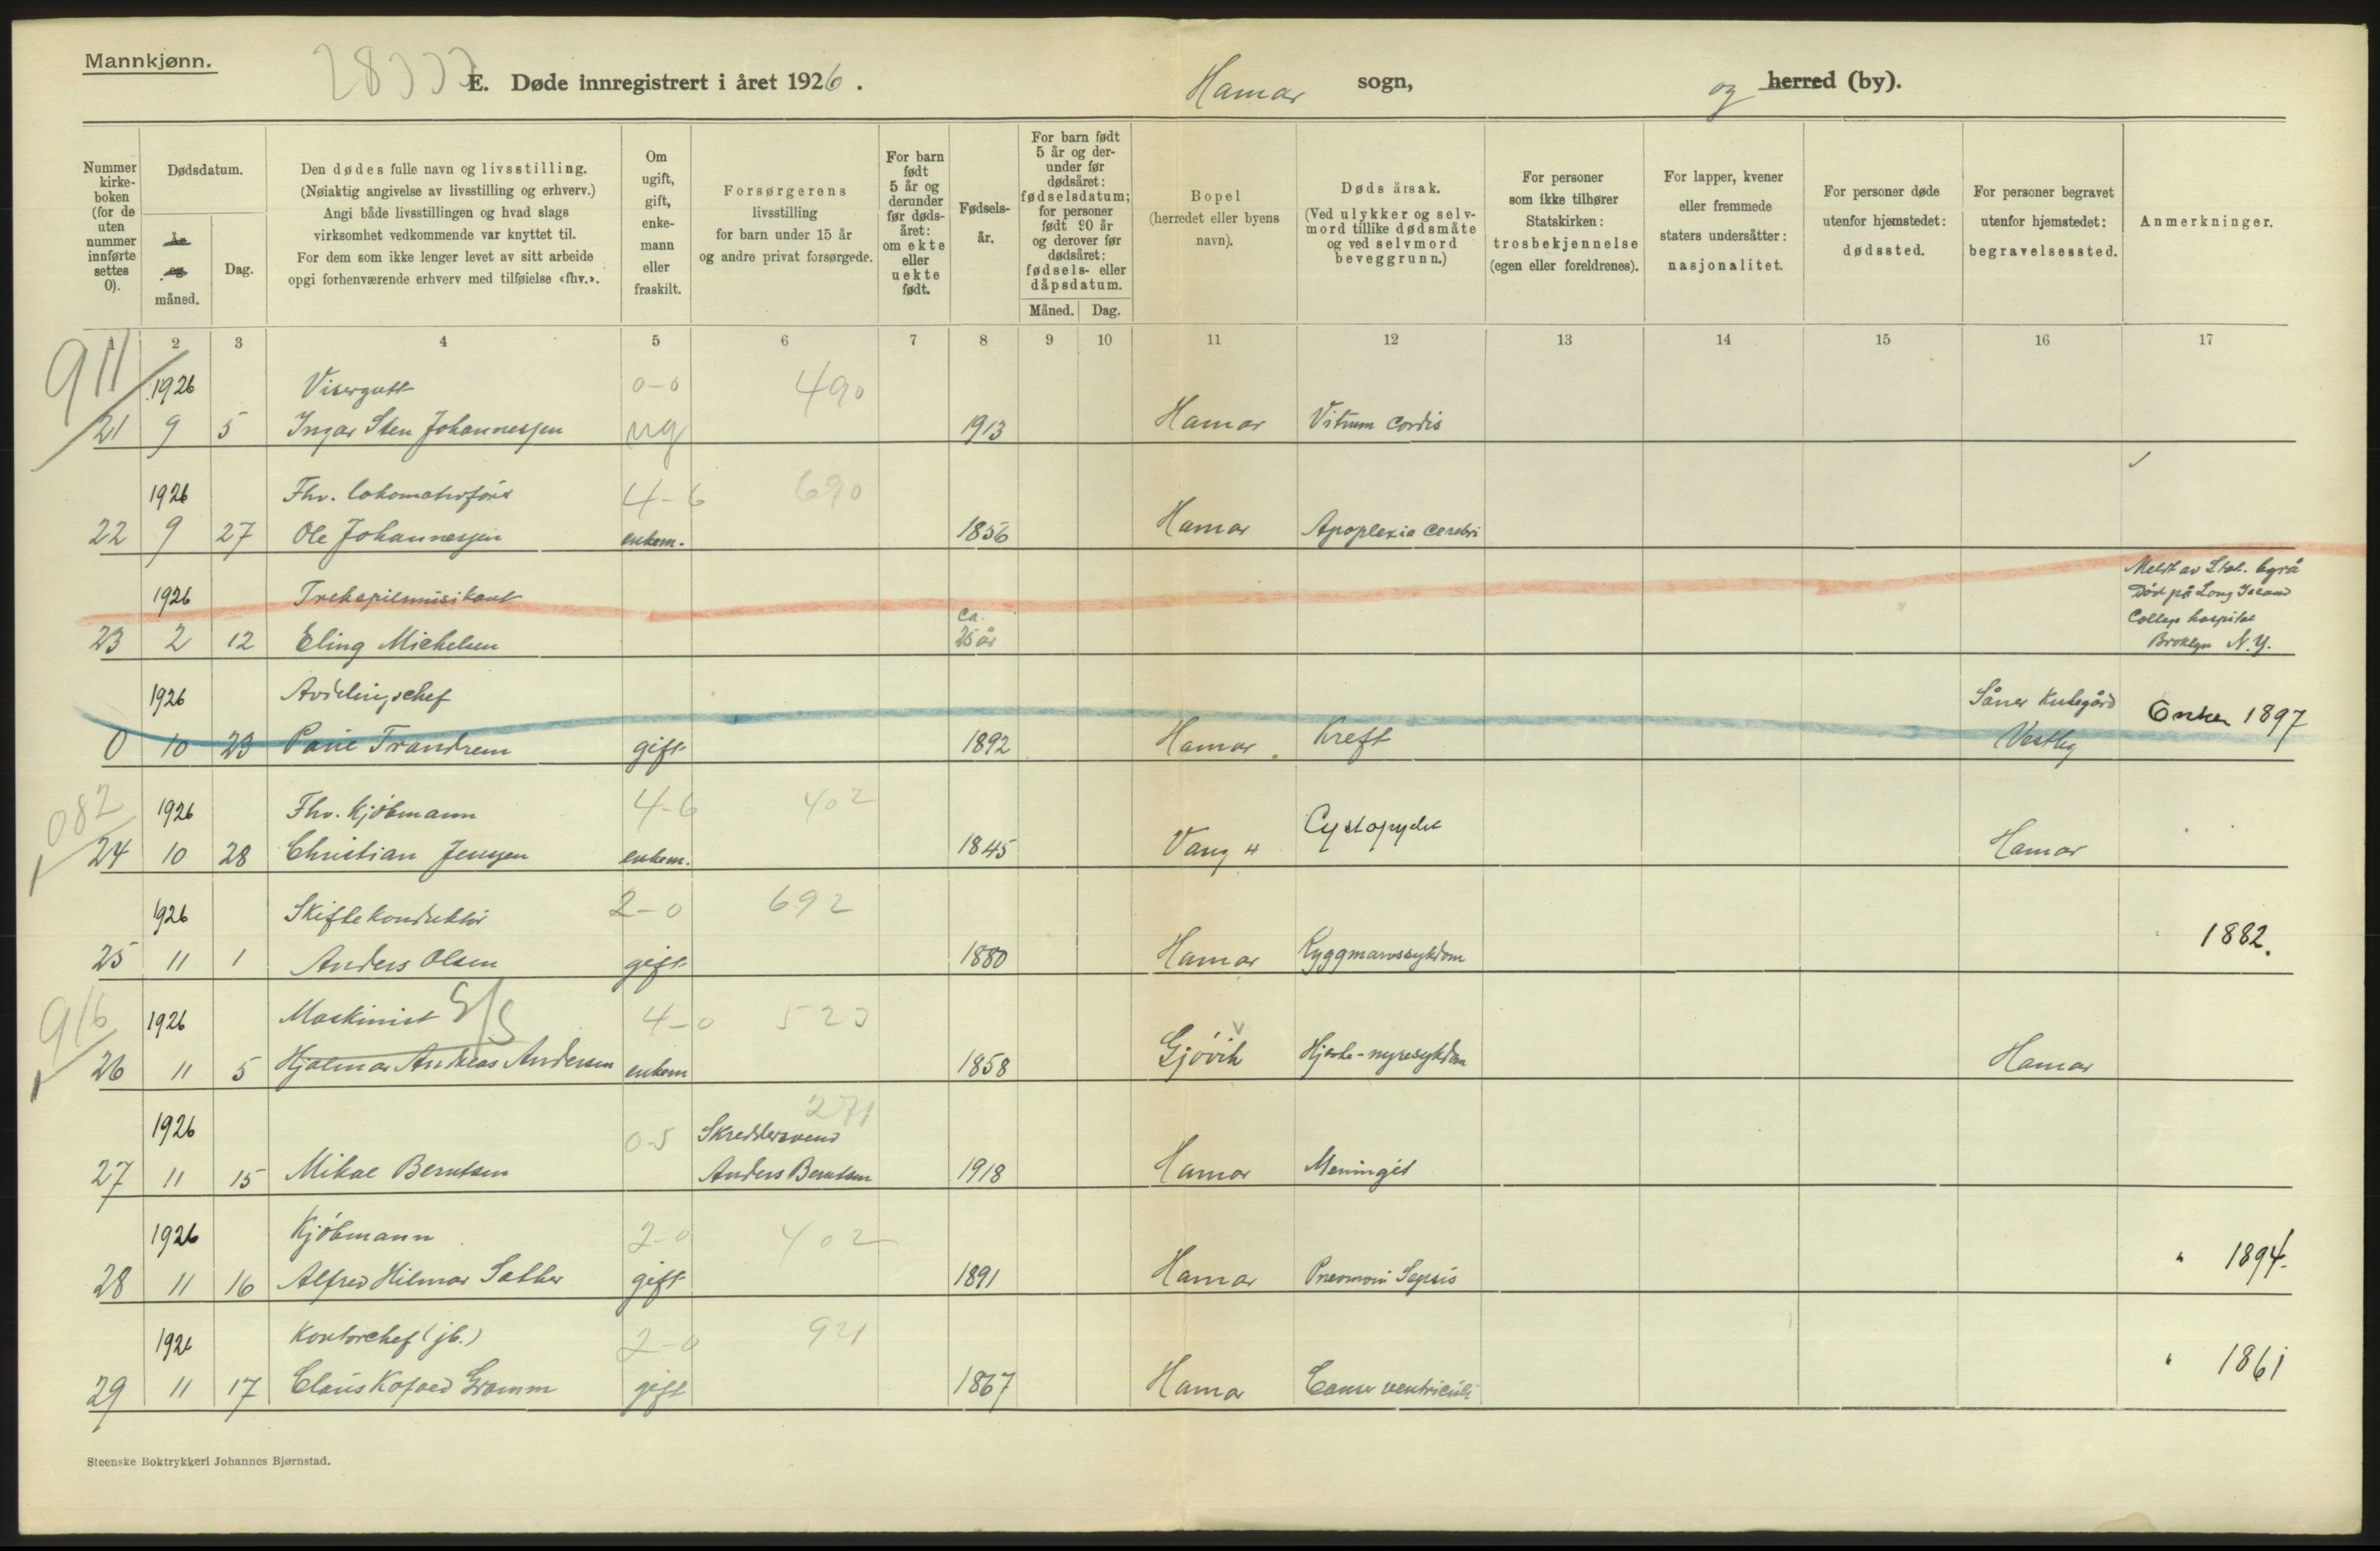 Mannkjønn.
E. Døde innregistrert i året 1926.
Hamar sogn,
og herred (by).
Nummer kirke-boken (for de uten nummer innførte settes 0).
Dødsdatum.
År og måned.
Dag.
Den dødes fulle navn og livsstilling.
(Nøiaktig angivelse av livsstilling og erhverv.)
Angi både livsstillingen og hvad slags
virksomhet vedkommende var knyttet til.
For dem som ikke lenger levet av sitt arbeide
opgi forhenværende erhverv med tilføielse «fhv.».
Om ugift, gift, enke-mann eller fraskilt.
Forsørgerens
livsstilling
for barn under 15 år
og andre privat forsørgede.
For barn født 5 år og derunder før døds-året: om ekte eller uekte født.
Fødsels-år.
For barn født 5 år og der-under før dødsåret: fødselsdatum; for personer født 90 år og derover før dødsåret: fødsels- eller dåpsdatum.
Måned. Dag.
Bopel
(herredet eller byens navn).
Dødsårsak.
(Ved ulykker og selv-mord tillike dødsmåte og ved selvmord beveggrunn.)
For personer som ikke tilhører Statskirken: trosbekjennelse (egen eller foreldrenes).
For lapper, kvener eller fremmede staters undersåtter: nasjonalitet.
For personer døde utenfor hjemstedet: dødssted.
For personer begravet utenfor hjemstedet: begravelsessted.
Anmerkninger.
1 2 3 4 5 6 7 8 9 10 11 12 13 14 15 16 17
911
1926 Visergutt 0-0 490
21 9 5 Ingar Sten Johannessen ug 1913 Hamar Vitium Cordis
1926 Fhv. lokomotivfører 4-6 690
22 9 27 Ole Johannessen enkem. 1856 Hamar Apoplexia cerebri
1926 Trekspilmusikant
23 2 12 Eling Michelsen ca. 25 år
Meldt av Stat. byrå
Død på Long Island
College hospital
Broklyn N.Y.
1926 Avdelingschef
0 10 23 Trandrem gift 1892 Hamar Kreft Såner Vestby Enken 1897
1082
1926 Fhv. Kjøbmann 4-6 402
24 10 28 Christian Jenssen enkem. 1845 Vang H Cystopyelit Hamar
1926 Skiftekonduktør 2-0 692
25 11 1 Anders Olsen gift 1880 Hamar Ryggmarvssykdom 1882.
916
1926 Maskinist S/S 4-0 523
26 11 5 Hjalmar Andreas Andersen enkem 1858 Gjøvik Hjerte-nyresykdom Hamar
1926 0-5 Skreddersvend 271
27 11 15 Mikal Berntsen Anders Berntsen 1918 Hamar Meningit
1926 Kjøbmann 2-0 402
28 11 16 Alfred Hilmar Sæther gift 1891 Hamar Pneumoni Sepsis " 1894.
1926 Kontorchef (jb.) 2-0 921
29 11 17 Claus Kofoed Gramm gift 1867 Hamar Cancer ventriculi " 1861
Steenske Boktrykkeri Johannes Bjørnstad.